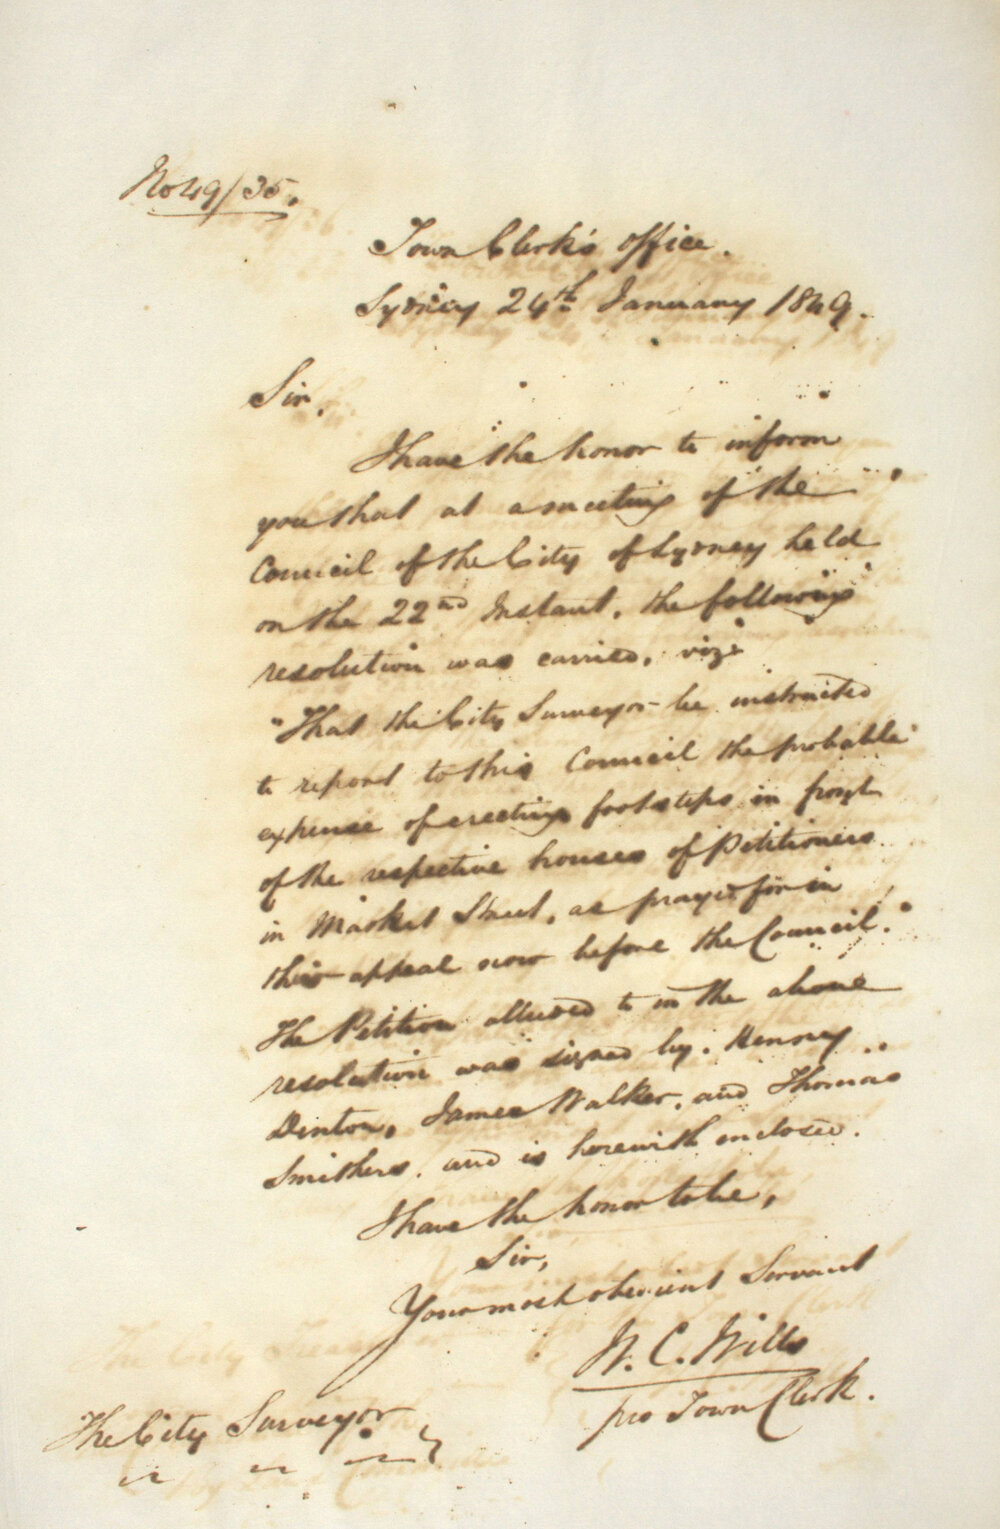 No 49/35.
Town Clerk's Office.
Sydney 24th January 1849.
Sir,
I have the honor to inform
you that at a meeting of the
Council of the City of Sydney held
on the 22nd Instant, the following
resolution was carried, vizt
"That the City Surveyor be instructed
to report to this Council the probable
expense of erecting footsteps in front
of the respective houses of Petitioners
in Market Street, as prayed for in
their appeal now before the Council."
The Petition alluded to in the above
resolution was signed by. Henney
Dinton, James Walker, and Thomas
Smithers. and is herewith enclosed.
I have the honor to be,
Sir,
Your most obedient Servant
W. C. Wills
pro Town Clerk.
The City Surveyor